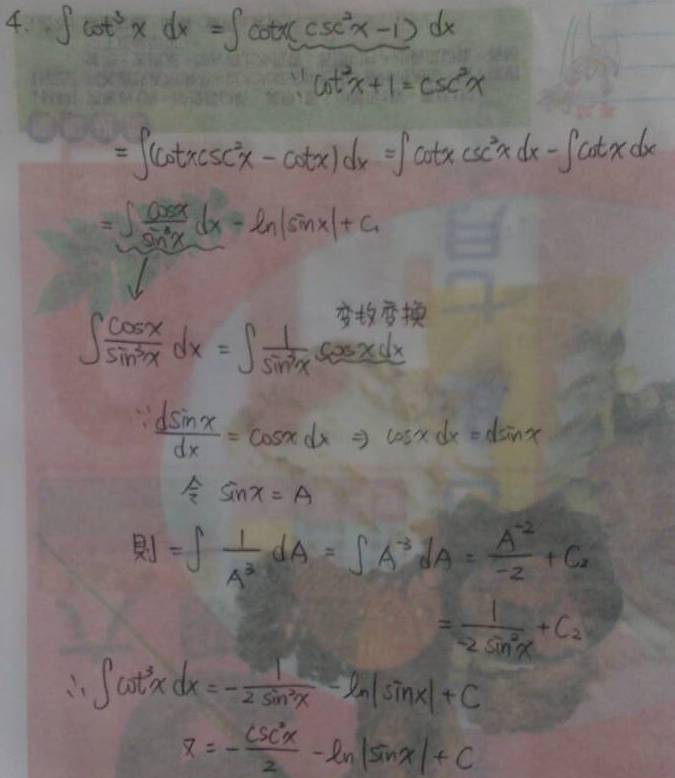 4. ∫ cot³x dx = ∫ cotx(csc²x-1) dx
∵ cot²x+1=csc²x
= ∫(cotxcsc²x - cotx)dx = ∫cotx csc²x dx - ∫cotx dx
= ∫ cosx/sin³x dx - ln|sinx|+C₁
∫ cosx/sin³x dx = ∫ 1/sin³x cosx dx
变数变换
∵ dsinx/dx = cosx dx ⇒ cosx dx = dsinx
令 sinx = A
則 = ∫ 1/A³ dA = ∫ A⁻³ dA = A⁻²/-2 + C₂
= 1/-2 sin²x + C₂
∴ ∫cot³x dx = - 1/2 sin²x - ln|sinx| + C
= - csc²x/2 - ln|sinx| + C